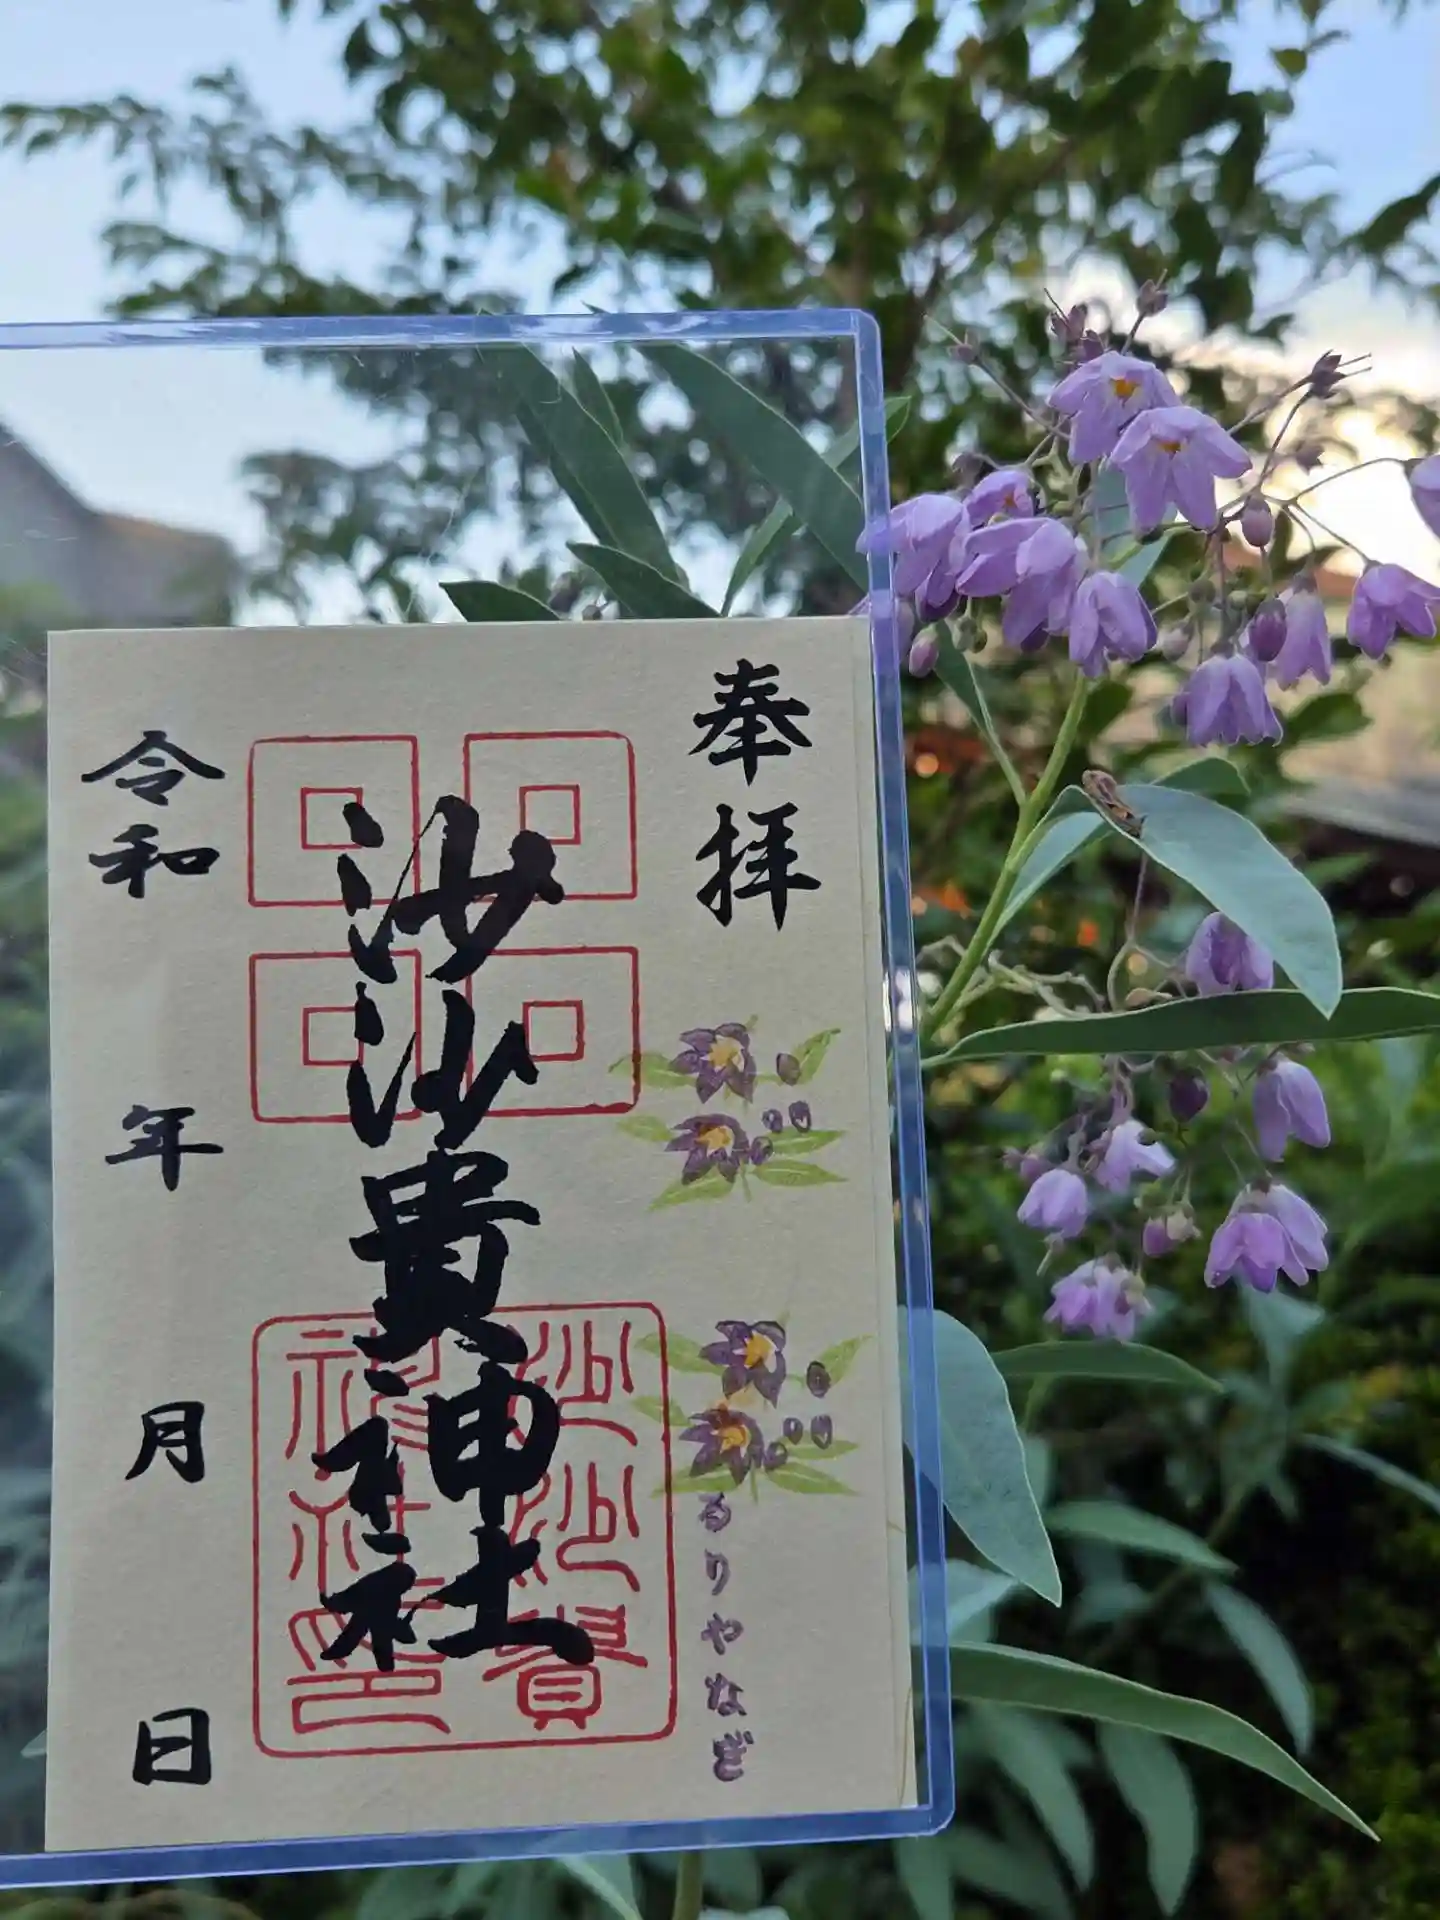 奉拝
るりやなぎ
沙沙貴神社
沙沙貴
神社印
令和 年 月 日